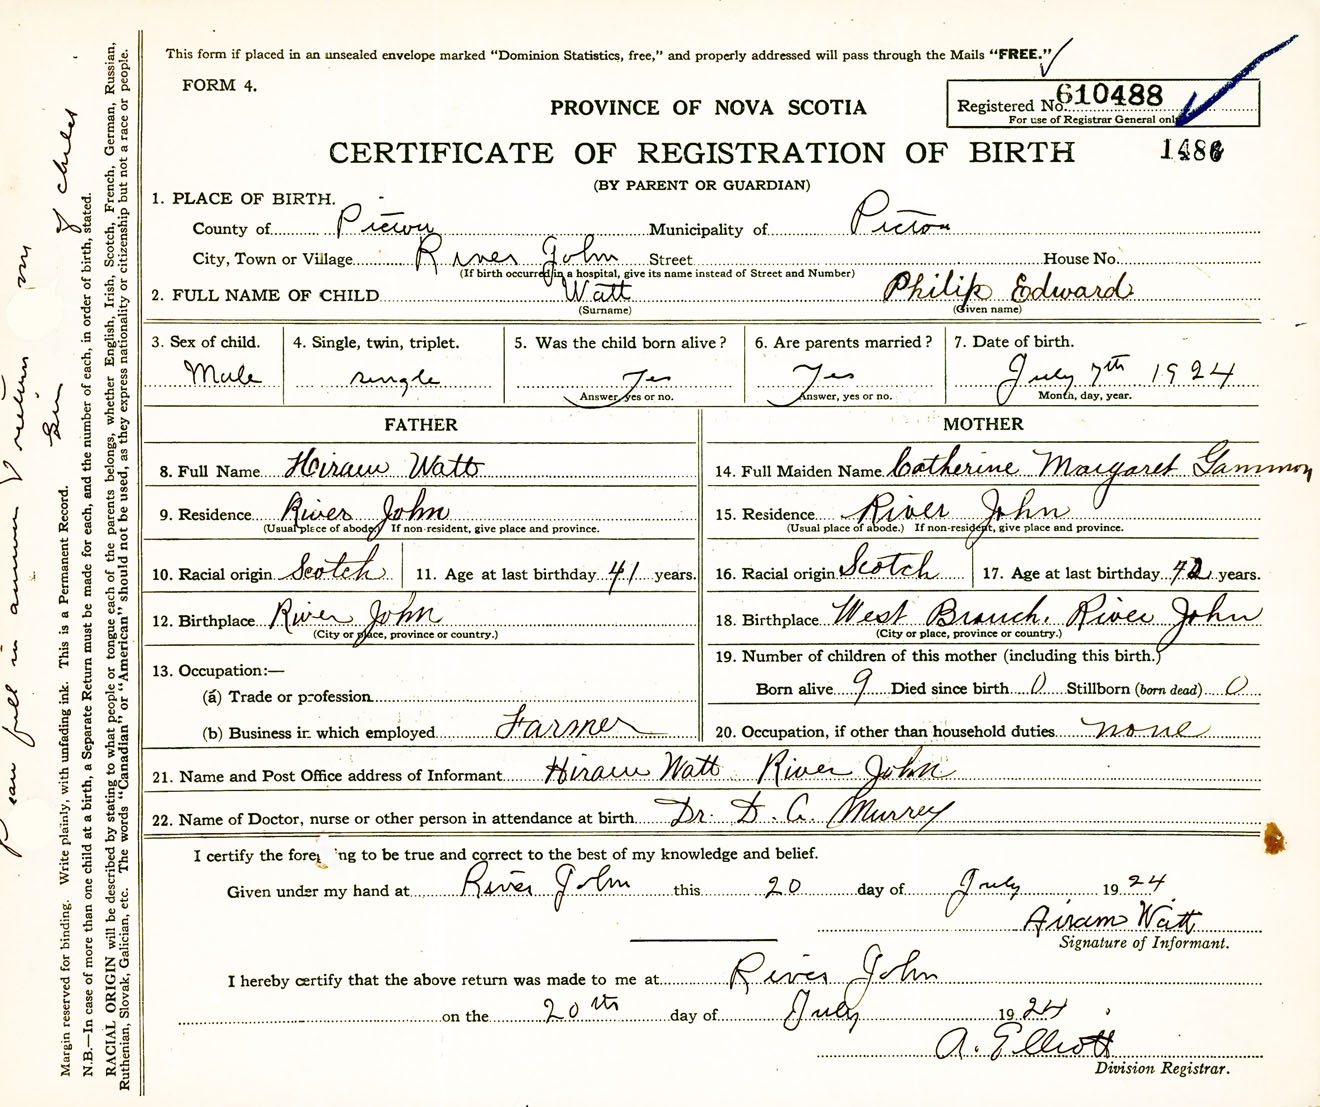 This form if placed in an unsealed envelope marked “Dominion Statistics, free,” and properly addressed will pass through the Mails “FREE.”
FORM 4.
PROVINCE OF NOVA SCOTIA
Registered No. 610488
For use of Registrar General only
CERTIFICATE OF REGISTRATION OF BIRTH
1486
(BY PARENT OR GUARDIAN)
1. PLACE OF BIRTH.
County of Pictou Municipality of Pictou
City, Town or Village River John Street House No.
(If birth occurred in a hospital, give its name instead of Street and Number)
2. FULL NAME OF CHILD Watt Philip Edward
(Surname) (Given name)
3. Sex of child. 4. Single, twin, triplet. 5. Was the child born alive? 6. Are parents married? 7. Date of birth.
Male single Yes Yes July 7th 1924
Answer, yes or no. Answer, yes or no. Month, day, year.
FATHER
8. Full Name Hiram Watt
9. Residence River John
(Usual place of abode) If non-resident, give place and province.
10. Racial origin Scotch 11. Age at last birthday 41 years.
12. Birthplace River John
(City or place, province or country.)
13. Occupation:—
(a) Trade or profession
(b) Business in which employed Farmer
MOTHER
14. Full Maiden Name Catherine Margaret Gammon
15. Residence River John
(Usual place of abode.) If non-resident, give place and province.
16. Racial origin Scotch 17. Age at last birthday 42 years.
18. Birthplace West Branch. River John
(City or place, province or country.)
19. Number of children of this mother (including this birth.)
Born alive 9 Died since birth 0 Stillborn (born dead) 0
20. Occupation, if other than household duties none
21. Name and Post Office address of Informant Hiram Watt River John
22. Name of Doctor, nurse or other person in attendance at birth Dr. D. A. Murrey
I certify the foregoing to be true and correct to the best of my knowledge and belief.
Given under my hand at River John this 20 day of July 1924
Hiram Watt
Signature of Informant.
I hereby certify that the above return was made to me at River John
on the 20th day of July 1924
A. Elliott
Division Registrar.
Margin reserved for binding. Write plainly, with unfading ink. This is a Permanent Record.
N.B.—In case of more than one child at a birth, a Separate Return must be made for each, and the number of each, in order of birth, stated.
RACIAL ORIGIN will be described by stating to what people or tongue each of the parents belongs, whether English, Irish, Scotch, French, German, Russian,
Ruthenian, Slovak, Galician, etc. The words “Canadian” or “American” should not be used, as they express nationality or citizenship but not a race or people.
full in return
of child